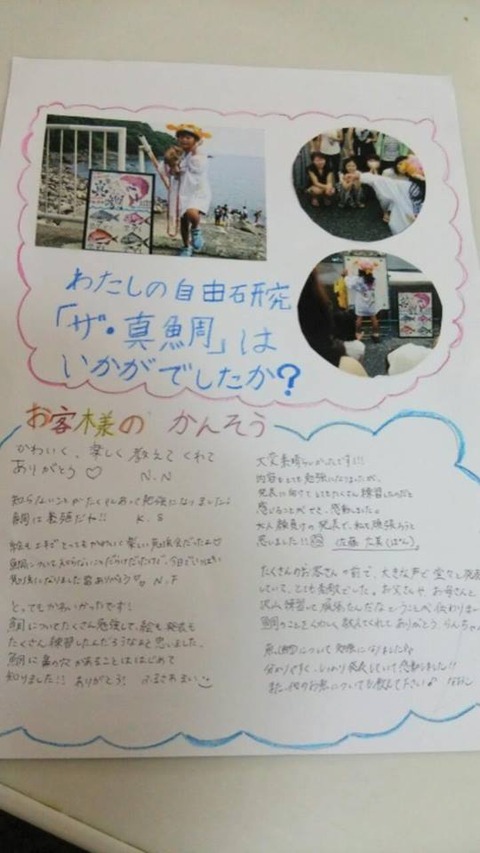 わたしの自由研究
「ザ・真鯛」は
いかがでしたか?
お客様の かんそう
かわいく、楽しく教えてくれて
ありがとう♡
N.N
知らないことがたくさんあって勉強になりました。
真鯛は素敵だね!!
K.S
勉強になりました ありがとう N.F
とってもかわいかったです!
鯛についてたくさん勉強して、絵も発表も
たくさん練習したんだろうなぁと思いました。
鯛に鼻の穴があることははじめて
知りました!! ありがとう!
大変素晴らしかったです!!!
内容もとても勉強になりましたが、
発表に向けてしてもたくさん練習したのだと
感じることができ、感動しました。
大人顔負けの発表で、私も頑張ろうと
思いました!!
たくさんのお客さんの前で、大きな声で堂々と発表
していて、とても素敵でした。お父さんや、お母さんと
沢山練習して頑張ったんだなということが伝わりました
鯛のことをくわしく教えてくれてありがとう らんちゃん
魚(鯛)について勉強になりました。
分かりやすく、しっかり発表していて感動しました!!
また、他のお魚についても教えて下さい♪